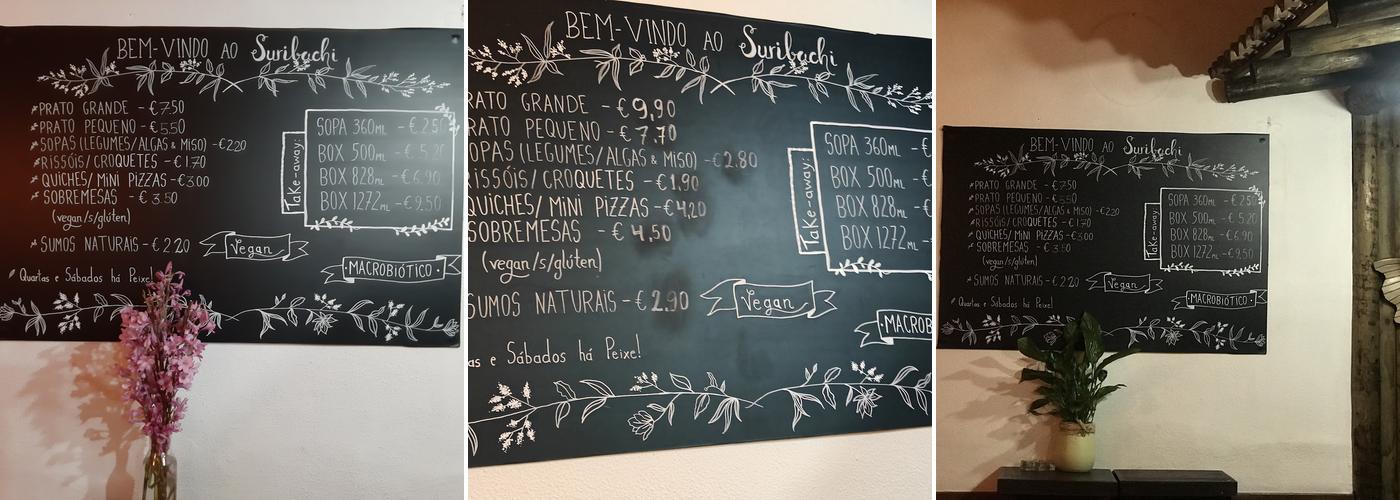 BEM-VINDO AO Suribachi
PRATO GRANDE - €7.50
PRATO PEQUENO - €5.50
SOPAS (LEGUMES/ALGAS & MISO) - €2.20
RISSÓIS/CROQUETES - €1.70
QUICHES/MINI PIZZAS - €3.00
SOBREMESAS - €3.50
(vegan/s/glúten)
SUMOS NATURAIS - €2.20
Quartas e Sábados há Peixe!
Take-away:
SOPA 360ML - €2.50
BOX 500ML - €5.20
BOX 828ML - €6.90
BOX 1272ML - €9.50
Vegan
MACROBIÓTICO
BEM-VINDO AO Suribachi
RATO GRANDE - €9,90
RATO PEQUENO - €7.70
OPAS (LEGUMES/ALGAS & MISO) - €2.80
RISSÓIS/CROQUETES - €1.90
QUICHES/MINI PIZZAS - €4,20
SOBREMESAS - €4,50
(vegan/s/glúten)
SUMOS NATURAIS - €2.90
as e Sábados há Peixe!
Take-away:
SOPA 360ML -
BOX 500ML -
BOX 828ML -
BOX 1272ML -
Vegan
MACROB
BEM-VINDO AO Suribachi
PRATO GRANDE - €7.50
PRATO PEQUENO - €5.50
SOPAS (LEGUMES/ALGAS & MISO) - €2.20
RISSÓIS/CROQUETES - €1.70
QUICHES/MINI PIZZAS - €3.00
SOBREMESAS - €3.50
(vegan/s/glúten)
SUMOS NATURAIS - €2.20
Quartas e Sábados há Peixe!
Take-away:
SOPA 360ML - €2.50
BOX 500ML - €5.20
BOX 828ML - €6.90
BOX 1272ML - €9.50
Vegan
MACROBIÓTICO